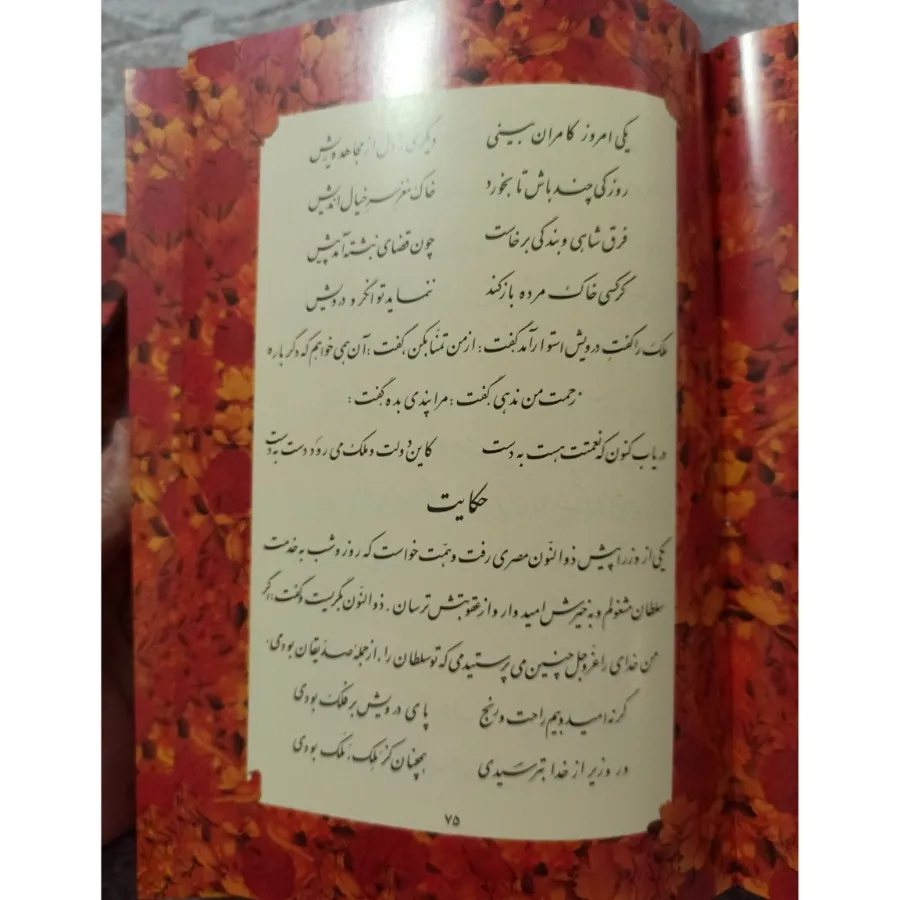 یکی امروز کامران بینی دیگری را دل از مجاهده ریش
روزکی چند باش تا بخورد خاک مغز سر خیال اندیش
فرق شاهی و بندگی برخاست چون قضای نبشته آمد پیش
گر کسی خاک مرده باز کند ننماید توانگر و درویش
ملک را گفتِ درویش استوار آمد گفت: از من تمنّا بکن، گفت: آن همی خواهم که دگر باره
زحمت من ندهی گفت: مرا پندی بده گفت:
دریاب کنون که نعمتت هست به دست کاین دولت و ملک می رود دست به دست
حکایت
یکی از وزرا پیش ذوالنّون مصری رفت و همّت خواست که روز و شب به خدمت
سلطان مشغولم و به خیرش امیدوار و از عقوبتش ترسان. ذوالنّون بگریست و گفت: اگر
من خدای را عزّوجل چنین می پرستیدمی که تو سلطان را، از جملهٔ صدّیقان بودمی.
گر نه امید و بیم راحت و رنج پای درویش بر فلک بودی
ور وزیر از خدا بترسیدی همچنان کز مَلِک، مَلَک بودی
۷۵